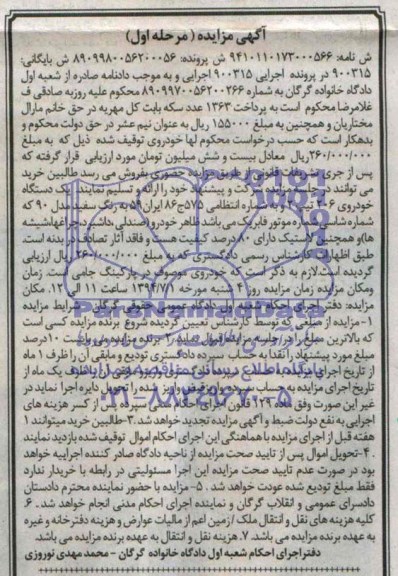 آگهی مزایده (مرحله اول)
ش نامه: ۹۴۱۰۱۱۰۱۷۳۰۰۰۵۶۶ ش پرونده: ۸۹۰۹۹۸۰۰۵۶۲۰۰۰۵۶ ش بایگانی:
۹۰۰۳۱۵ در پرونده اجرایی ۹۰۰۳۱۵ اجرایی و به موجب دادنامه صادره از شعبه اول
دادگاه خانواده گرگان به شماره ۸۹۰۹۹۷۰۰۵۶۲۰۰۲۶۶ محکوم علیه روزبه صادقی ف
غلامرضا محکوم است به پرداخت ۱۳۶۳ عدد سکه بابت کل مهریه در حق خانم مارال
مختاریان و همچنین به مبلغ ۱۵۵۰۰۰ ریال به عنوان نیم عشر در حق دولت محکوم و
بدهکار است که حسب درخواست محکوم لها خودروی توقیف شده ذیل که به مبلغ
۲۶۰/۰۰۰/۰۰۰ ریال معادل بیست و شش میلیون تومان مورد ارزیابی قرار گرفته که
پس از جری تشریفات قانونی از طریق مزایده حضوری بفروش می رسد طالبین خرید
می توانند در جلسه مزایده شرکت و پیشنهاد خود را ارائه و تسلیم نمایند. یک دستگاه
خودروی ۲۰۶ شماره انتظامی ۵۷۵ج۸۶ ایران ۵۹ به رنگ سفید مدل ۹۰ که
شماره شاسی و شماره موتور فابریک می باشد. ظاهر خودرو (صندلی، داشبرد، چراغها، شیشه
ها) و همچنین لاستیک دارای ۸۰ درصد کیفیت هست و فاقد آثار تصادف در بدنه است.
طبق اظهارات کارشناس رسمی دادگستری که به مبلغ ۲۶۰/۰۰۰/۰۰۰ ریال ارزیابی
گردیده است. لازم به ذکر است که خودروی موصوف در پارکینگ جامی است. زمان
ومکان مزایده زمان مزایده روز شنبه مورخه ۱۳۹۴/۷/۱ ساعت ۱۱ الی ۱۲. مکان
مزایده: دفتر اجرای احکام شعبه اول دادگاه عمومی حقوقی گرگان شرایط مزایده
۱- مزایده از مبلغی که توسط کارشناس تعیین گردیده شروع برنده مزایده کسی است
که بالاترین مبلغ را در جلسه مزایده قبول نماید. ۲- برنده مزایده می بایست ۱۰ درصد
مبلغ مورد پیشنهاد را نقدا به حساب سپرده دادگستری تودیع و مابقی آن را ظرف ۱ ماه
از تاریخ اجرای مزایده ظرف یک ماه از
تاریخ اجرای مزایده به حساب سپرده واریز و فیش واریز شده را تحویل دایره اجرا نماید در
غیر این صورت وفق ماده ۱۲۹ قانون اجرای احکام مدنی سپرده پس از کسر هزینه های
اجرایی به نفع دولت ضبط و آگهی مزایده تجدید خواهد شد. ۳-طالبین خرید میتوانند ۱
هفته قبل از اجرای مزایده با هماهنگی این اجرای احکام اموال توقیف شده بازدید نمایند
.۴-تحویل اموال پس از تایید صحت مزایده از ناحیه دادگاه صادر کننده اجراییه خواهد
بود در صورت عدم تایید صحت مزایده این اجرا مسئولیتی در رابطه با خریدار ندارد
فقط مبلغ تودیع شده عودت خواهد شد. ۵-مزایده با حضور نماینده محترم دادستان
دادسرای عمومی و انقلاب گرگان و نماینده اجرای احکام مدنی انجام خواهد شد. ۶.
کلیه هزینه های نقل و انتقال ملک /زمین اعم از مالیات عوارض و هزینه دفترخانه و غیره
به عهده برنده مزایده می باشد. ۷. هزینه نقل و انتقال به عهده برنده مزایده می باشد.
دفتر اجرای احکام شعبه اول دادگاه خانواده گرگان - محمد مهدی نوروزی
ParsNamadData
۰۲۱-۸۸۳۴۹۶۷۰-۵